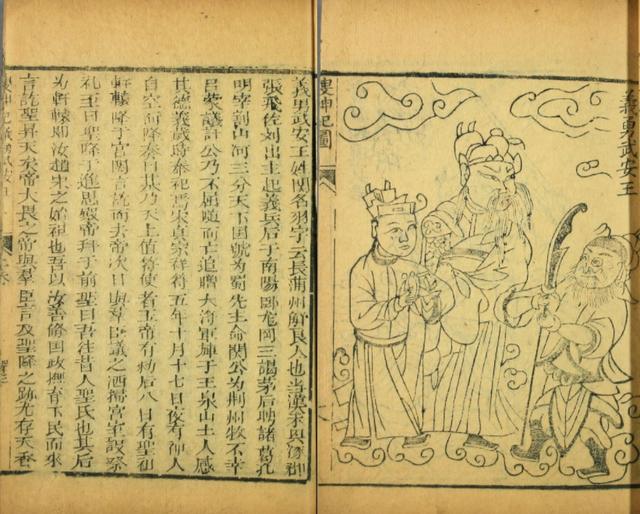 義勇武安王
搜神記圖
義勇武安王姓關名羽字雲長蒲州解良人也當漢末與涿郡
張飛佐刘先主起義兵后于南陽卧龙岡三謁茅庐聘諸葛孔
明宰割山河三分天下国號為蜀先主命關公為荆州牧不幸
吕蒙設計公乃不屈随而亡追贈大將軍庙于玉泉山土人感
其德義歳時奉祀焉宋真宗祥符五年十月十七日夜有神人
自空而降奏曰某乃天上值符使者玉帝有勅后八日有聖祖
軒轅降于宮闕言訖而去帝次日與羣臣議之洒掃宮室設祭
礼至日聖降于延恩殿帝拜于前聖曰吾往昔人皇氏也其后
为軒轅即汝趙宋之始祖也吾以汝善修国政撫育下民而來
言訖聖昇天矣帝大異之帝與羣臣言及聖降之跡尤存天香